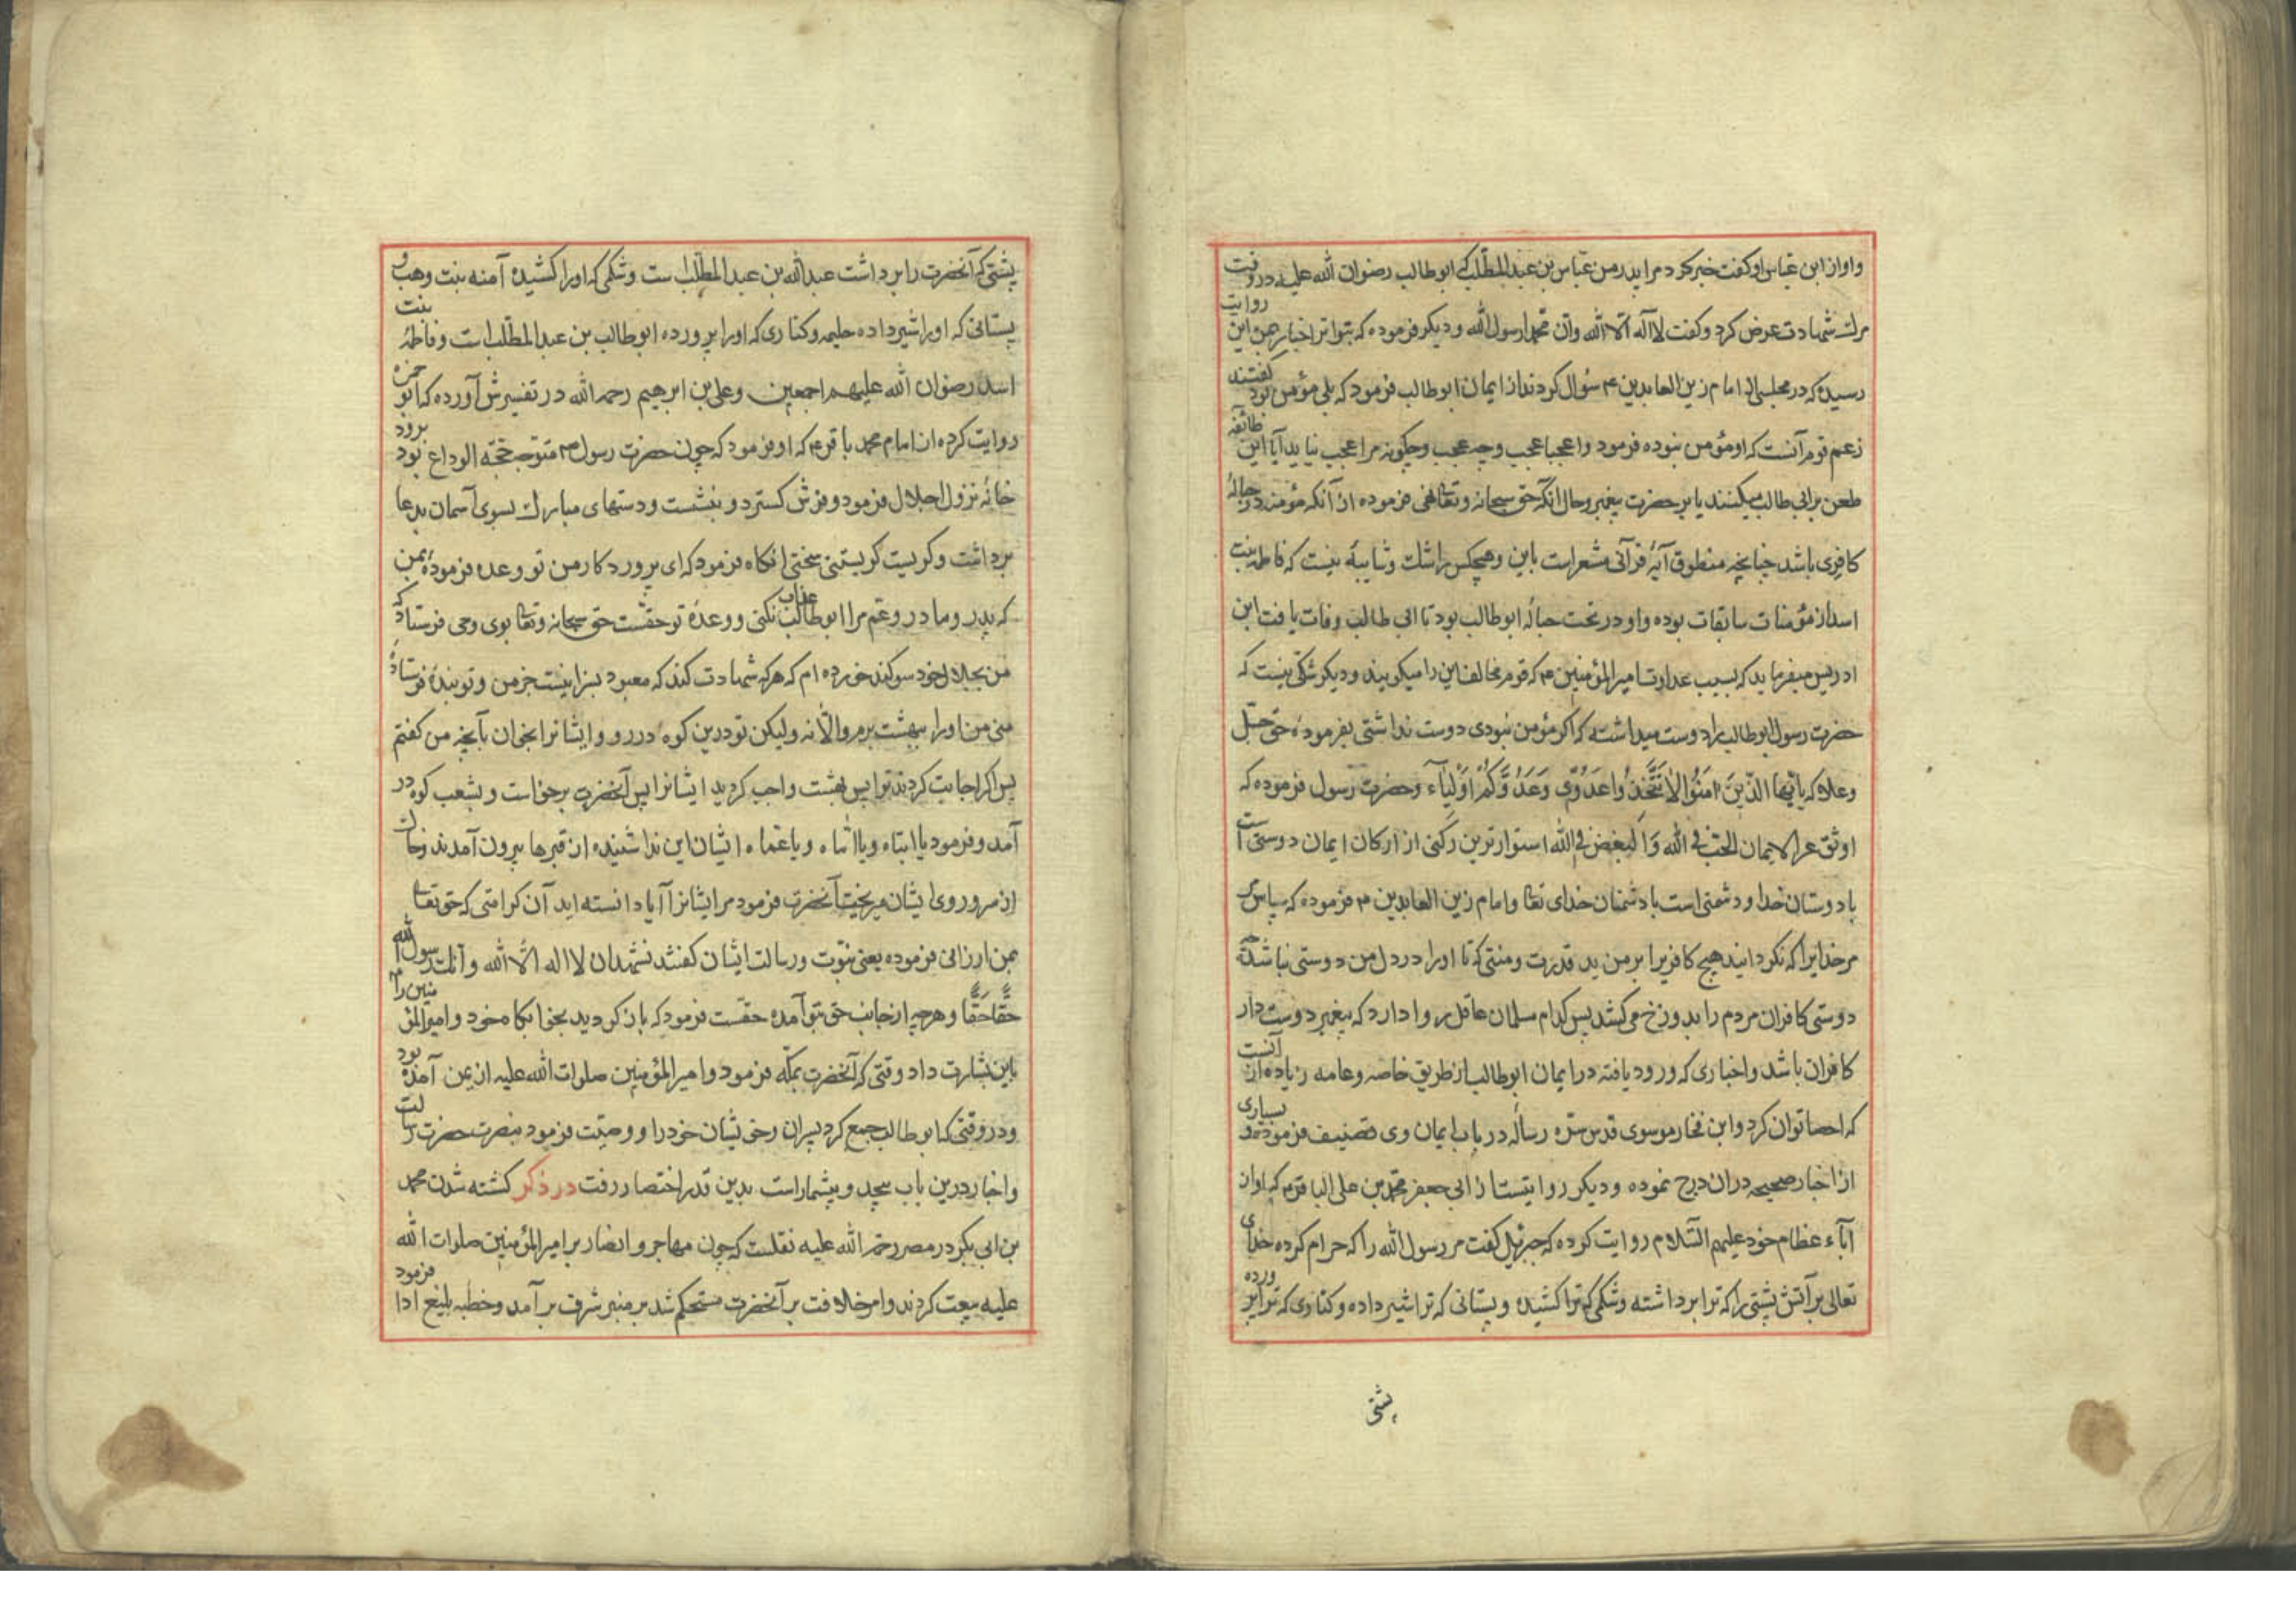 واو از ابن عباس او گفت خبر کرد مرا پدر من عباس بن عبد المطلب که ابو طالب رضوان الله علیه در وقت
مرک شهادت عرض کرد و گفت لا اله الا الله وان محمدا رسول الله و دیگر فرموده که بتواتر اخبار بمن این روایت
رسیده که در مجلسی از امام زین العابدین ۴ سؤال کردند از ایمان ابو طالب فرمود که بلی مؤمن بود گفتند
زعم قوم آنست که او مؤمن نبوده فرمود واعجبا عجب وچه عجب وچگونه مرا عجب نیاید آیا این طائفه
طعن بر ابی طالب میکنند یا بر حضرت پیغمبر و حال آنکه حق سبحانه وتعا نهی فرموده از آنکه مؤمنه در حبالهٔ
کافری باشد چنانچه منطوق آیهٔ قرآنی مشعر است باین وهیچکس را شک وشایبهٔ نیست که فاطمه بنت
اسد از مؤمنات سابقات بوده واو در تحت حبالهٔ ابو طالب بود تا ابی طالب وفات یافت ابن
ادریس میفرماید که بسبب عداوت امیر المؤمنین ۴ که قوم مخالف این را میگویند ودیگر شکی نیست که
حضرت رسول ابو طالب را دوست میداشته که اگر مؤمن نبودی دوست نداشتی بفرمودهٔ حق جل
وعلا که یا ایها الذین امنوا لا تتخذوا عدوی وعدوکم اولیاء وحضرت رسول فرموده که
اوثق عرا الایمان الحب فی الله والبغض فی الله استوارترین رکنی از ارکان ایمان دوستی است
با دوستان خدا ودشمنی است با دشمنان خدای تعا وامام زین العابدین ۴ فرموده که سپاس
مر خدایرا که نگردانید هیچ کافریرا بر من ید قدرت ومنتی که تا او را در دل من دوستی نباشد چه
دوستی کافران مردم را بدوزخ می کشد پس کدام مسلمان عاقل روا دارد که پیغمبر دوست دار
کافران باشد واخباری که ورود یافته در ایمان ابو طالب از طریق خاصه وعامه زیاده از آنست
که احصا توان کرد وابن فخار موسوی قدس سره رسالهٔ در باب ایمان وی تصنیف فرموده و بسیاری
از اخبار صحیحه دران درج نموده ودیگر روایتست از ابی جعفر محمد بن علی الباقر ۴ که او از
آباء عظام خود علیهم السلام روایت کرده که جبرئیل گفت مر رسول الله را که حرام کرده خدای
تعالی بر آتش پشتی را که ترا برداشته وشکمی که ترا کشیده وپستانی که ترا شیر داده وکناری که ترا پرورده
پشتی
پشتی که آنحضرت را برداشت عبد الله بن عبد المطلب است وشکمی که او را کشیده آمنه بنت وهب و
پستانی که او را شیر داده حلیمه وکناری که او را پرورده ابو طالب بن عبد المطلب است وفاطمهٔ بنت
اسد رضوان الله علیهم اجمعین وعلی بن ابرهیم رحمه الله در تفسیرش آورده که ابو حمزه
روایت کرده از امام محمد باقر ۴ که او فرمود که چون حضرت رسول ۴ متوجه حجة الوداع بود برود
خانه نزول اجلال فرمود وفرش گسترد وبنشست ودستهای مبارک بسوی آسمان بدعا
برداشت وگریست گریستنی سختی آنگاه فرمود که ای پروردگار من تو وعده فرمودهٔ بمن
که پدر ومادر وعم مرا ابو طالب عذاب نکنی ووعدهٔ تو حقست حق سبحانه وتعا بوی وحی فرستاد که
من بجلال خود سوگند خورده ام که هر که شهادت کند که معبود بسزا نیست جز من وتو بنده فرستادهٔ
منی من او را ببهشت برم والا نه ولیکن تو درین کوه در رو وایشانرا بخوان بآنچه من گفتم
پس اگر اجابت کردند ترا پس بهشت واجب گردید ایشانرا پس آنحضرت برخواست وبشعب کوه در
آمد وفرمود یا ابتاه ویا اماه ویا عماه ایشان این ندا شنیده از قبرها بیرون آمدند وخاک
از سر وروی ایشان میریخت آنحضرت فرمود مر ایشانرا آیا دانسته اید آن کرامتی که حق تعا
بمن ارزانی فرموده یعنی نبوت ورسالت ایشان گفتند نشهد ان لا اله الا الله وانک رسول الله
حقا حقا وهرچه از جانب حق بتو آمده حقست فرمود که باز گردید بخوابگاه خود وامیر المؤمنین را
باین بشارت داد وقتی که آنحضرت بمکه فرمود وامیر المؤمنین صلوات الله علیه از یمن آمده بود
ودر وقتی که ابو طالب جمع کرد پسران وخویشان خود را ووصیت فرمود بنصرت حضرت رسالت
واخبار درین باب بیحد وبیشمار است بدین قدر اختصار رفت در ذکر کشته شدن محمد
بن ابی بکر در مصر رحمة الله علیه نقلست که چون مهاجر وانصار بر امیر المؤمنین صلوات الله
علیه بیعت کردند وامر خلافت بر آنحضرت مستحکم شد بر منبر شرف بر آمد وخطبه بلیغ ادا فرمود